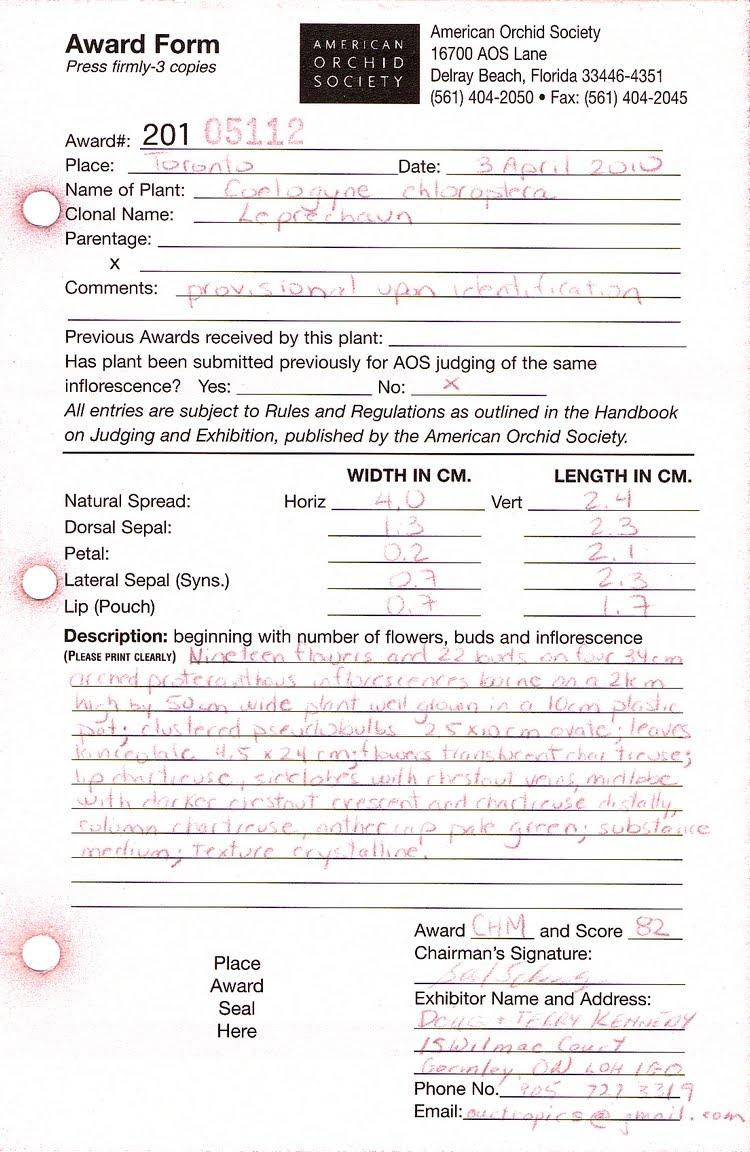 Award Form
Press firmly-3 copies
AMERICAN
ORCHID
SOCIETY
American Orchid Society
16700 AOS Lane
Delray Beach, Florida 33446-4351
(561) 404-2050 • Fax: (561) 404-2045
Award#: 201 05112
Place: Toronto Date: 3 April 2010
Name of Plant: Coelogyne chloroptera
Clonal Name: Leprechaun
Parentage:
x
Comments: provisional upon identification
Previous Awards received by this plant:
Has plant been submitted previously for AOS judging of the same
inflorescence? Yes: No: X
All entries are subject to Rules and Regulations as outlined in the Handbook
on Judging and Exhibition, published by the American Orchid Society.
WIDTH IN CM. LENGTH IN CM.
Natural Spread: Horiz 4.0 Vert 2.4
Dorsal Sepal: 1.3 2.3
Petal: 0.2 2.1
Lateral Sepal (Syns.) 0.7 2.3
Lip (Pouch) 0.7 1.7
Description: beginning with number of flowers, buds and inflorescence
(PLEASE PRINT CLEARLY) Nineteen flowers and 22 buds on four 34cm
arched proteranthous inflorescences borne on a
high by 50cm wide plant well grown in a 10cm plastic
pot; clustered pseudobulbs 2.5 x 10 cm ovate; leaves
lanceolate 4.5 x 24 cm; flowers translucent chartreuse;
lip chartreuse, sidelobes with chestnut veins, midlobe
with darker chestnut crescent and chartreuse distally,
column chartreuse, anther cap pale green; substance
medium; texture crystalline.
Place
Award
Seal
Here
Award CHM and Score 82
Chairman's Signature:
Exhibitor Name and Address:
DOUG + TERRY KENNEDY
15 Wilmac Court
Gormley, ON L0H 1G0
Phone No. 905 727 3319
Email: ourtropics@gmail.com